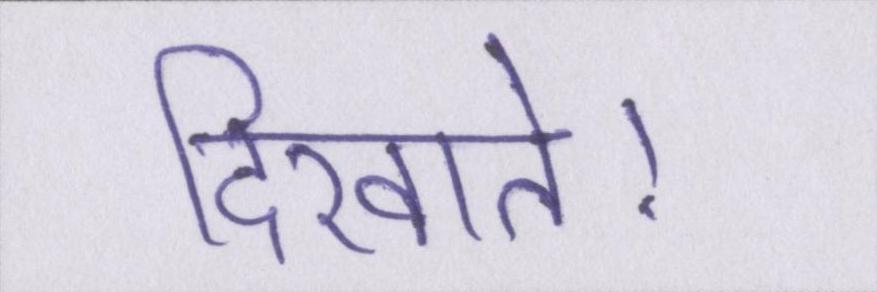 दिखाते!